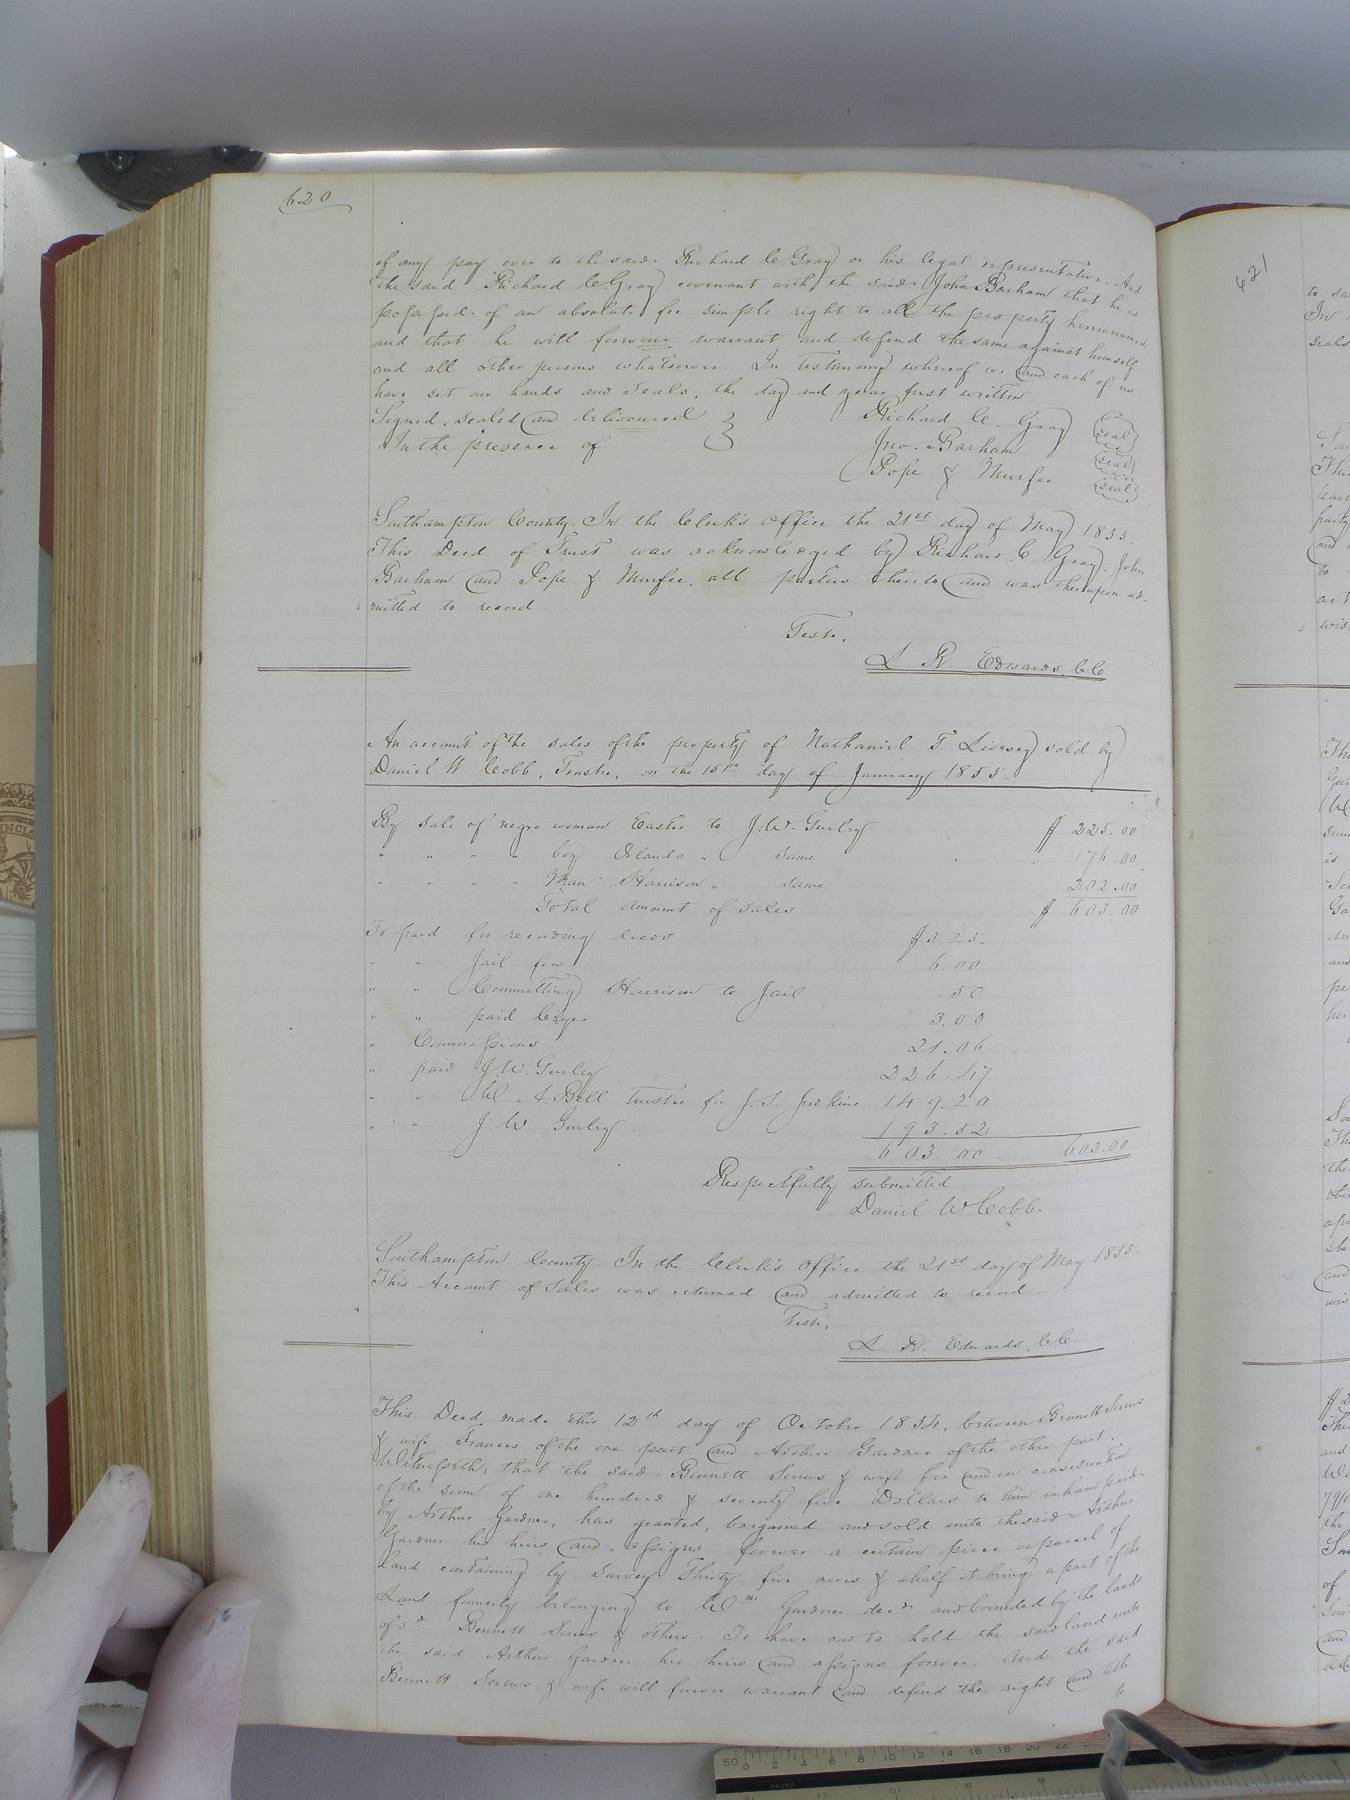 620
if any pay over to the said Richard C Gray or his legal representatives. And
the said Richard C Gray covenant with the said John Barham that he is
possessed of an absolute fee simple right to all the property hereinnamed
and that he will forever warrant and defend the same against himself
and all other persons whatsoever. In testimony whereof we and each of us
have set our hands and seals, the day and year first written
Signed, sealed and delivered
In the presence of
Richard C. Gray seal
Jno. Barham seal
Pope & Murfee seal
Southampton County. In the Clerk's office the 21st day of May 1855.
This Deed of Trust was acknowledged by Richard C Gray, John
Barham and Pope & Murfee, all parties thereto and was thereupon ad-
mitted to record
Teste,
L. R. Edwards, C.C.
An account of the sales of the property of Nathaniel T. Livesay sold by
Daniel W. Cobb, Trustee, on the 15th day of January 1855.
By sale of negro woman Easter to J. W. Gurley $ 225.00
" " " " boy Orlando " same 176.00
" " " " Man Harrison " same 202.00
Total amount of sales $ 603.00
To paid for recording deeds $3.25.
" " Jail fees 6.00
" " Committing Harrison to Jail .50
" " paid Cryer 3.00
" Commissions 21.06
" paid J. W. Gurley 226.47
" " A. Bell trustee for J. S. 149.20
" " J. W. Gurley 193.52
603.00 603.00
Respectfully submitted
Daniel W. Cobb.
Southampton County. In the Clerk's Office the 21st day of May 1855.
This Account of Sales was returned and admitted to record.
Teste,
L. R. Edwards, C.C.
This Deed, made this 12th day of October 1854, between Bennett
& wife Frances of the one part and Arthur Gardner of the other part.
Witnesseth; that the said Bennett & wife for and in consideration
of the sum of one hundred & seventy five Dollars to him in hand paid
by Arthur Gardner, has granted, bargained and sold unto the said Arthur
Gardner his heirs and assigns forever a certain piece or parcel of
Land containing by Survey Thirty five acres & a half it being a part of the
Land formerly belonging to Gardner decd and bounded by the lands
of sd Bennett & others. To have and to hold the said land unto
the said Arthur Gardner his heirs and assigns forever. And the said
Bennett & wife will forever warrant and defend the right and
621